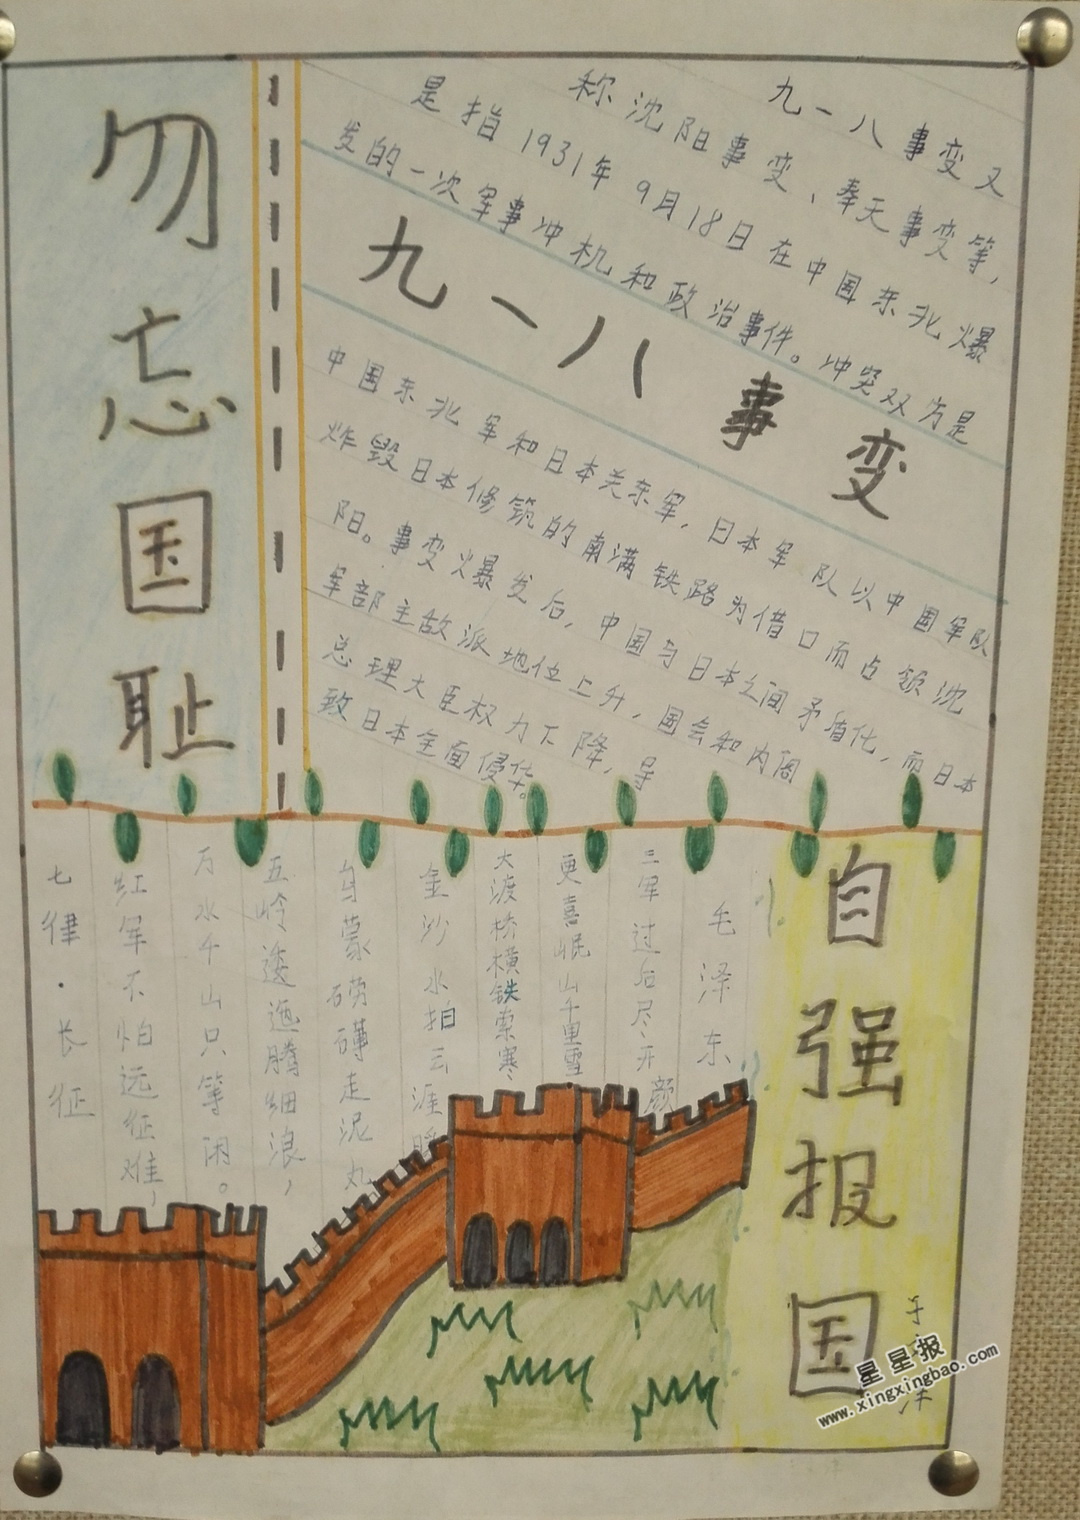 勿忘国耻
九一八事变又
称沈阳事变、奉天事变等,
是指1931年9月18日在中国东北爆
发的一次军事冲机和政治事件。冲突双方是
九一八事变
中国东北军和日本关东军,日本军队以中国军队
炸毁日本修筑的南满铁路为借口而占领沈
阳。事变爆发后,中国与日本之间矛盾化,而日本
军部主敌派地位上升,国会和内阁
总理大臣权力下降,导
致日本全面侵华。
七律·长征
红军不怕远征难,
万水千山只等闲。
五岭逶迤腾细浪,
乌蒙磅礴走泥丸
金沙水拍云涯
大渡桥横铁索寒
更喜岷山千里雪
三军过后尽开颜
毛泽东
自强报国
星星报
www.xingxingbao.com